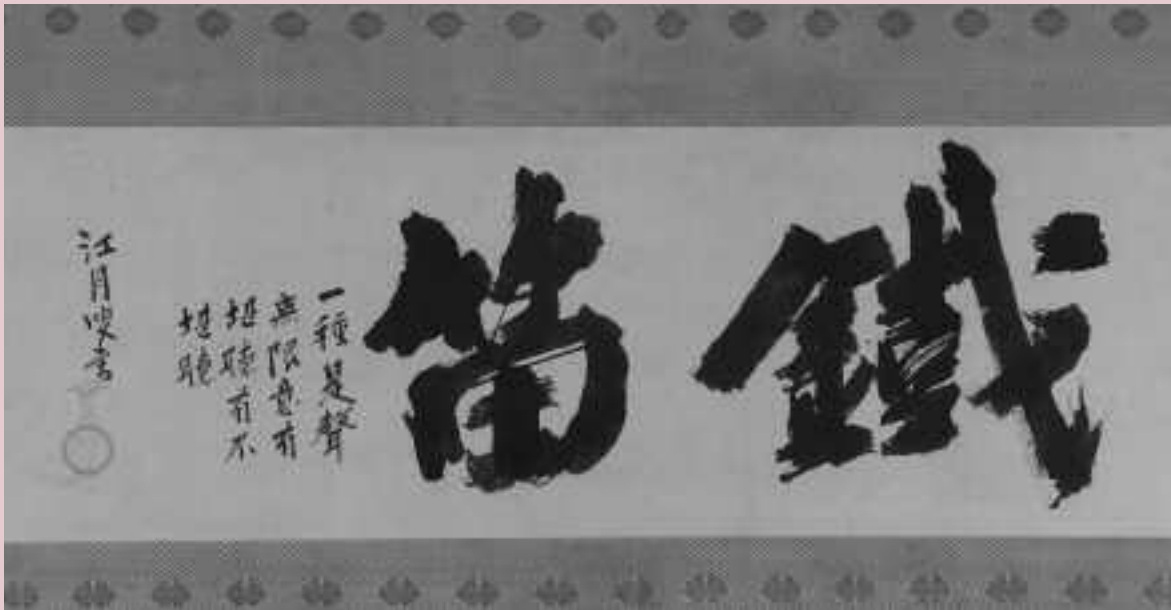 鐵笛
一種是聲
無限意有
堪聴有不
堪聴
江月叟書